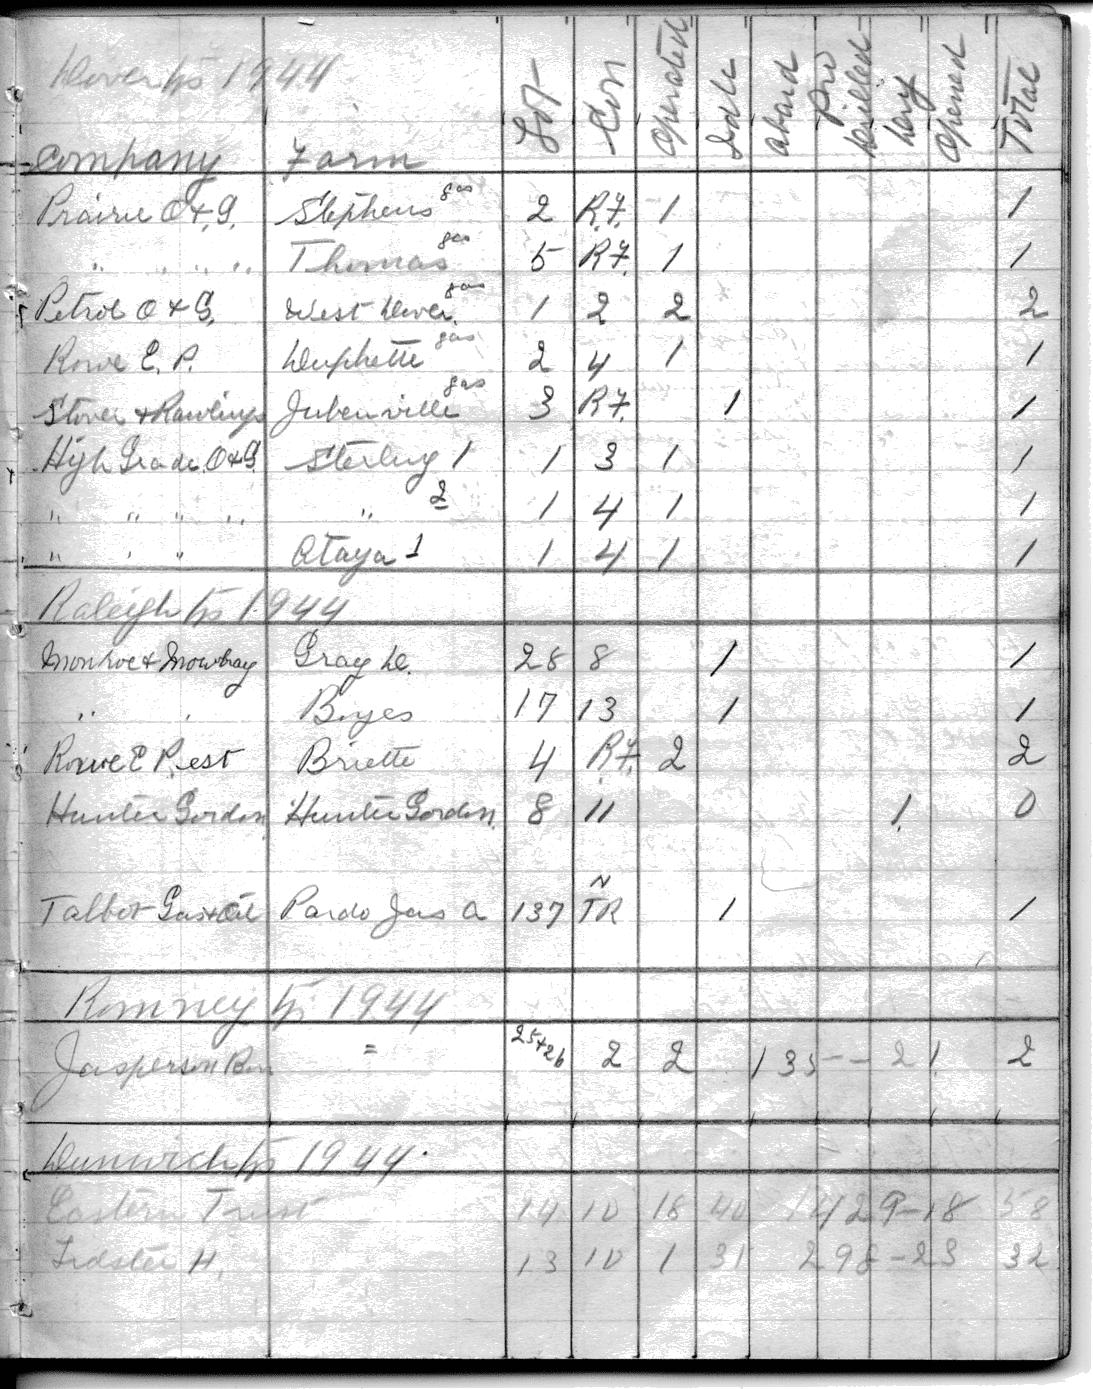 Dover tp 1944
Company Farm Lot Con Operated Idle aband Pro Drilled Dry Opened Total
Prairie O & G. Stephens gas 2 R.F. 1 1
" " " " Thomas gas 5 R.F. 1 1
Petrol O & G. West Dover gas 1 2 2 2
Rowe E. P. Duphette gas 2 4 1 1
Stover & Rawlings Jubenville gas 3 R.F. 1 1
High Grade O&G Sterling 1 1 3 1 1
" " " " " 2 1 4 1 1
" " " Ataya 1 1 4 1 1
Raleigh tp 1944
Monroe & Mowbray Gray D. 28 8 1 1
" " Boyes 17 13 1 1
Rowe E P. est Briette 4 R.F. 2 2
Hunter Gordon Hunter Gordon 8 11 1 0
Talbot Gas & Oil Pardo Jas A 137 N TR 1 1
Romney tp 1944
Jasperson = 25+26 2 2 135 - - 2 1 2
Dunwich tp 1944.
Eastern Trust 14 10 18 40 1429-18 58
H. 13 10 1 31 298-23 32